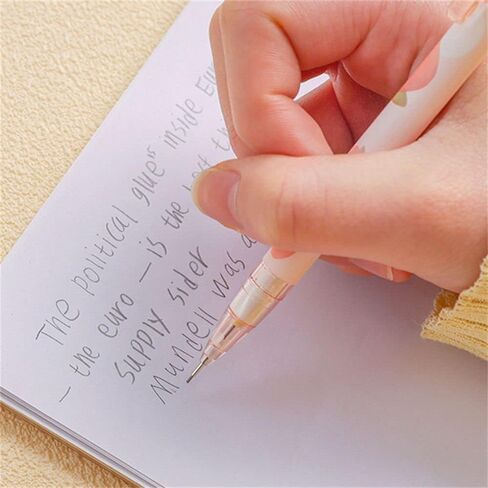 The political glue" inside
– the euro – is the
supply sider
Mundell was a